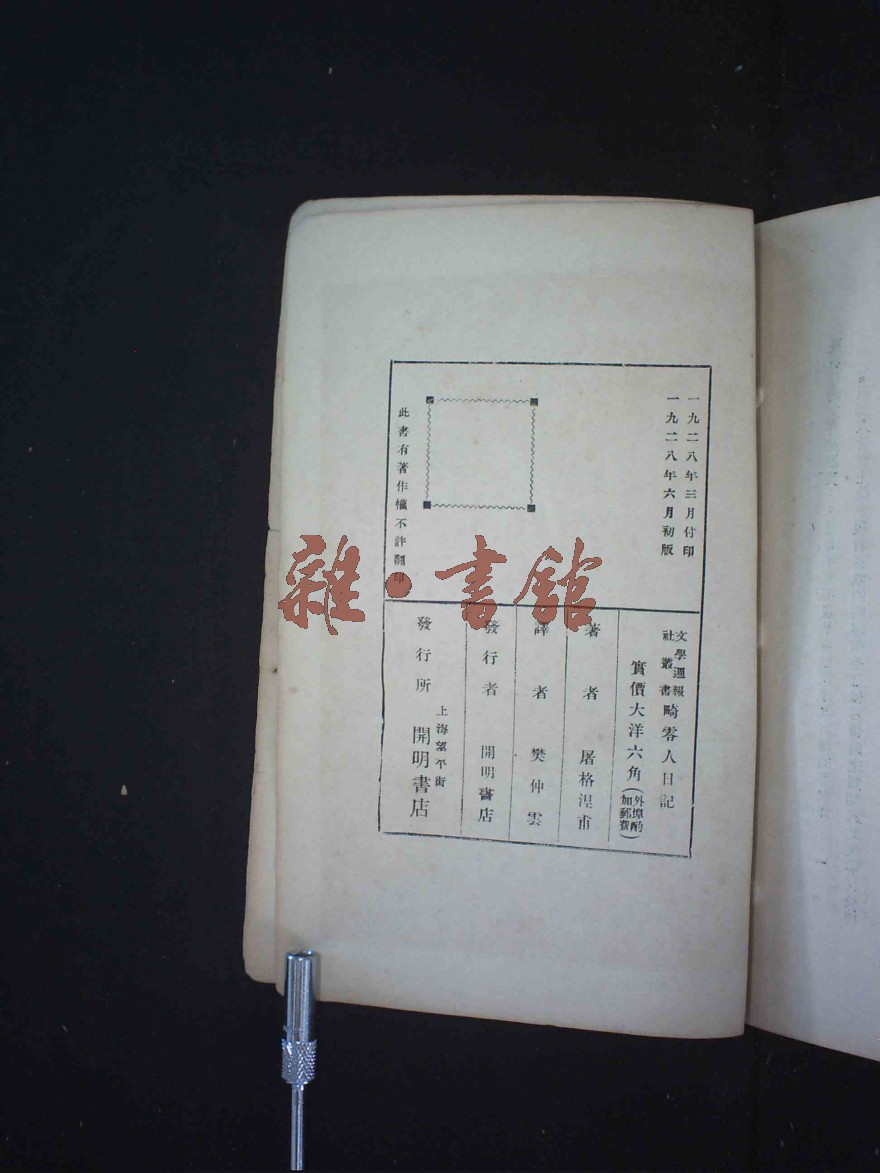 一九二八年三月付印
一九二八年六月初版
此書有著作權不許翻印
文學週報社叢書 畸零人日記
實價大洋六角(外埠酌加郵費)
著者 屠格涅甫
譯者 樊仲雲
發行者 開明書店
發行所 上海望平街 開明書店
雜·書館